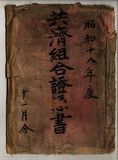 昭和十八年度
共濟組合證憑書
十二月分